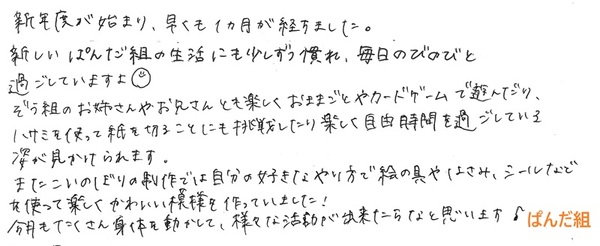 新年度が始まり、早くも1カ月が経ちました。
新しいぱんだ組の生活にも少しずつ慣れ、毎日のびのびと
過ごしていますよ☺
ぞう組のお姉さんやお兄さんとも楽しくおままごとやカードゲームで遊んだり、
ハサミを使って紙を切ることにも挑戦したり楽しく自由時間を過ごしている
姿が見かけられます。
またこいのぼりの制作では自分の好きなやり方で絵の具やはさみ、シールなど
を使って楽しくかわいい模様を作っていました!
今月もたくさん身体を動かして、様々な活動が出来たらなと思います♪ ぱんだ組